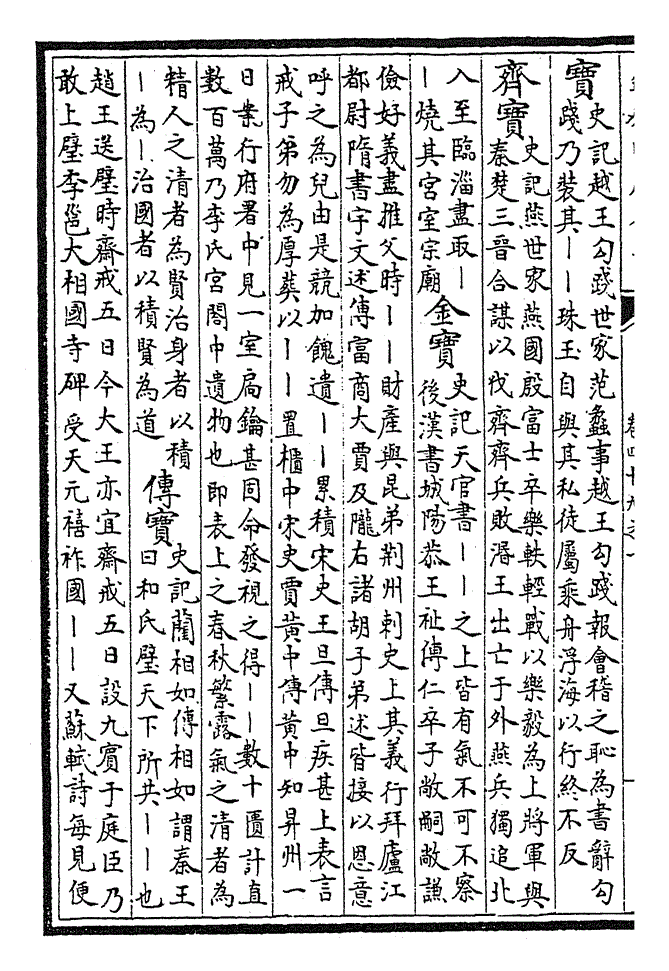 寶
史記越王勾踐世家范蠡事越王勾踐報會稽之恥為書辭勾
踐乃裝其||珠玉自與其私徒屬乘舟浮海以行終不反
齊寶
史記燕世家燕國殷富士卒樂軼輕戰以樂毅為上將軍與
秦楚三晉合謀以伐齊齊兵敗湣王出亡于外燕兵獨追北
入至臨淄盡取|
|燒其宮室宗廟
金寶
史記天官書||之上皆有氣不可不察
後漢書城陽恭王祉傳仁卒子敞嗣敞謙
儉好義盡推父時||財產與昆弟荊州刺史上其義行拜廬江
都尉隋書宇文述傳富商大賈及隴右諸胡子弟述皆接以恩意
呼之為兒由是競加餽遺||累積宋史王旦傳旦疾甚上表言
戒子弟勿為厚葬以||置櫃中宋史賈黃中傳黃中知昇州一
日案行府署中見一室扃鑰甚固命發視之得||數十匱計直
數百萬乃李氏宮閣中遺物也即表上之春秋繁露氣之清者為
精人之清者為賢治身者以積
|為|治國者以積賢為道
傳寶
史記藺相如傳相如謂秦王
曰和氏璧天下所共||也
趙王送璧時齋戒五日今大王亦宜齋戒五日設九賓于庭臣乃
敢上璧李邕大相國寺碑 受天元禧祚國||又蘇軾詩每見便